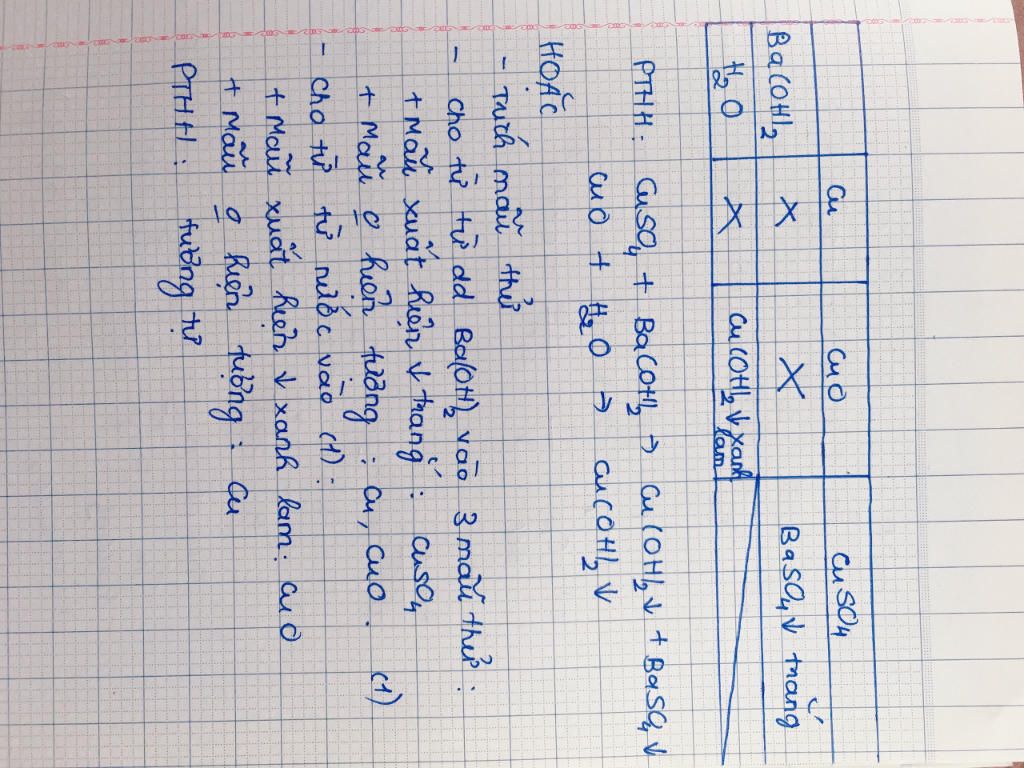 Cu CuO CuSO4
Ba(OH)2 X X BaSO4↓ trắng
H2O X Cu(OH)2↓ xanh lam
PTHH: CuSO4 + Ba(OH)2 → Cu(OH)2↓ + BaSO4↓
CuO + H2O → Cu(OH)2↓
HOẶC
- Trích mẫu thử
- Cho từ từ dd Ba(OH)2 vào 3 mẫu thử:
+ Mẫu xuất hiện ↓ trắng: CuSO4
+ Mẫu o hiện tượng: Cu, CuO. (1)
- Cho từ từ nước vào (1):
+ Mẫu xuất hiện ↓ xanh lam: CuO
+ Mẫu o hiện tượng: Cu
PTHH: tương tự